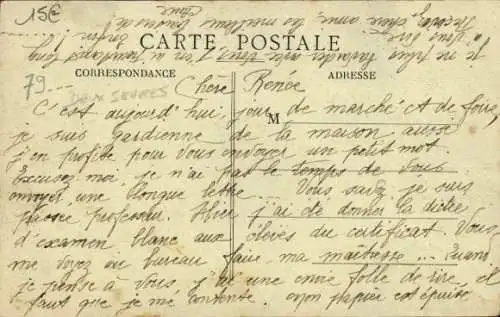 15€
CARTE POSTALE
CORRESPONDANCE
ADRESSE
79...
DEUX SEVRES
Chère Renée
C'est aujourd'hui, jour de marché et de foire,
M
je suis gardienne de la maison aussi
j'en profite pour vous envoyer un petit mot.
Excusez moi, je n'ai pas le temps de vous
envoyer une longue lettre... Vous savez je suis
passée professeur. Hier j'ai été donner la dictée
d'examen blanc aux élèves du certificat. Vous
me voyez au bureau faire ma maîtresse... Quand
je pense à vous, j'ai une envie folle de rire, il
faut que je me contente. Mon papier est épuisé
je ne puis
plus longtemps
vous dire
Recevez, chère amie, les meilleurs baisers de